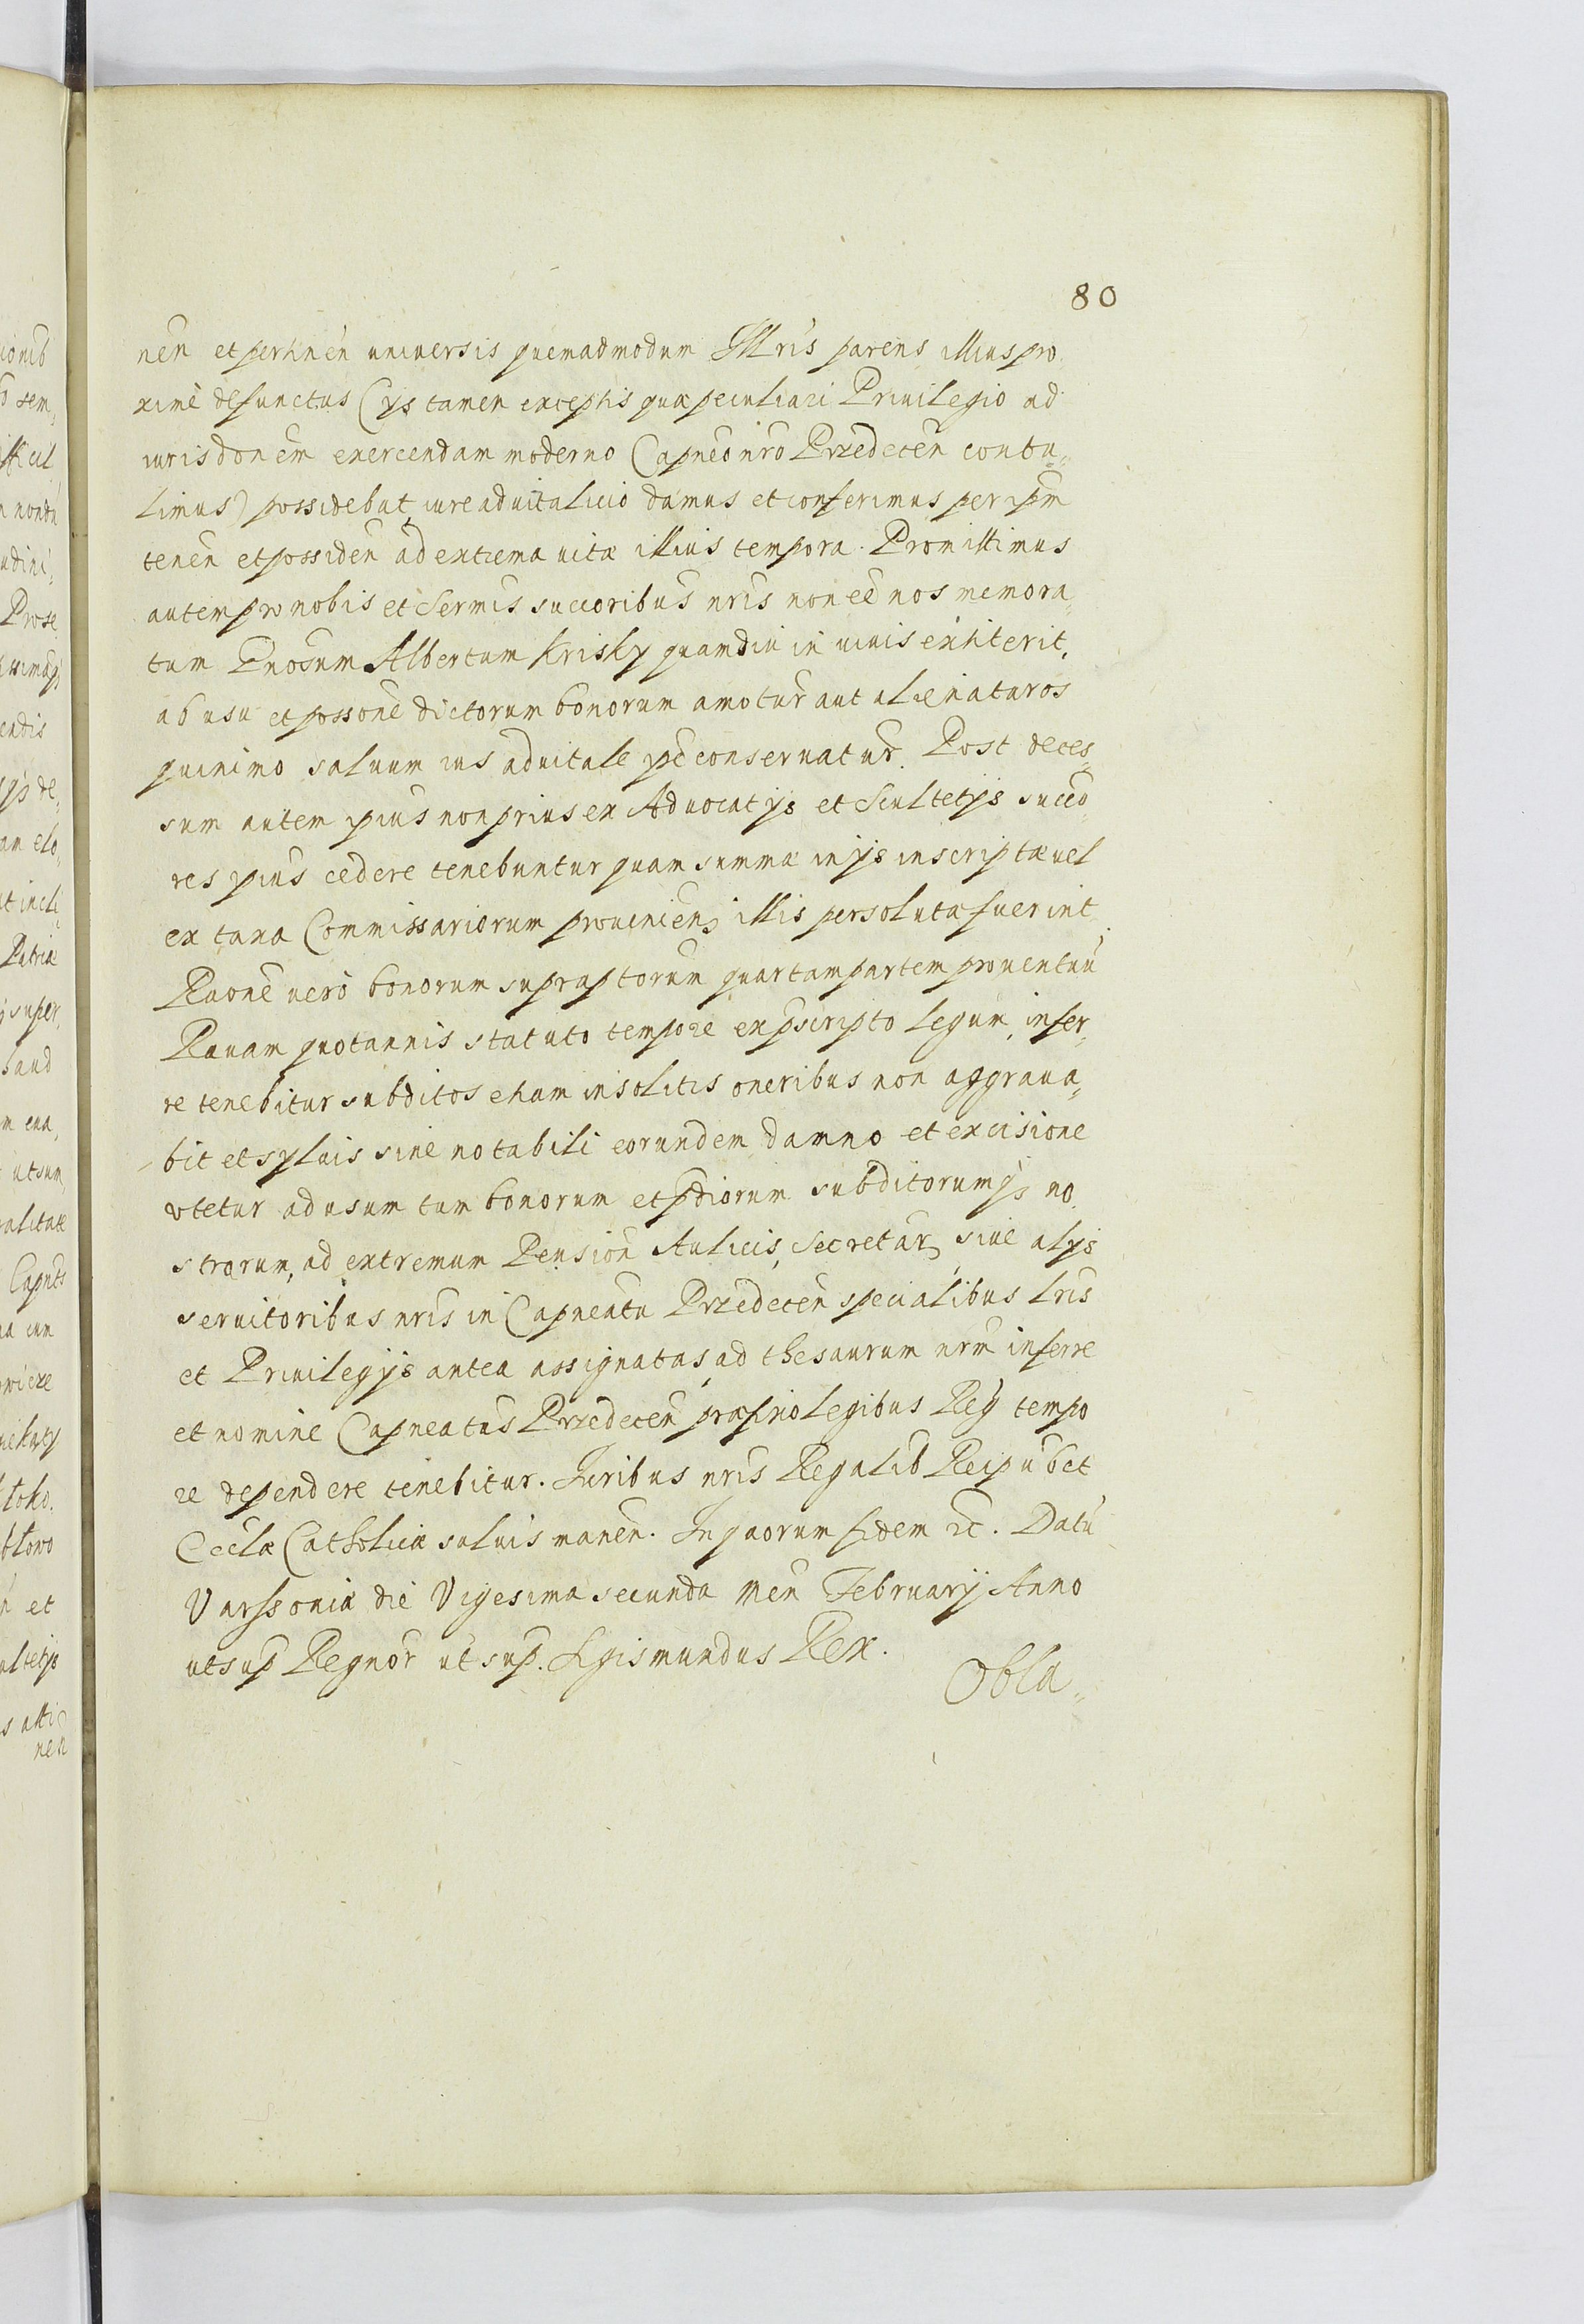 80
nen̄ et pertinen̄ uniuersis quemadmodum Illris parens illius pro
xime defunctus (ijs tamen exceptis quæ peculiari Priuilegio ad
iurisdonem exercendam moderno Capneo nro Przedecen̄ contu„
limus) possidebat, iure aduitalicio damus et conferimus per ipm
tenen̄ et possiden̄ ad extrema uitæ illius tempora. Promittimus
autem pro nobis et Sermis succoribus nris non eē nos memora„
tum Gnosum Albertum Krisky quamdiu in uiuis extiterit,
ab usu et possone dictorum bonorum amotur̄ aut alienaturos
quinimo saluum ius aduitale ipē conseruatur̄. Post deces„
sum autem ipius non prius ex Aduocatijs et Scultetijs succo
res ipius cedere tenebuntur quam summæ in ijs inscriptæ uel
ex taxa Commissariorum prouenien, illis persolutæ fuerint.
Raone uero bonorum supraptorum quartam partem prouentuū
Rauam quotannis statuto tempore ex pscripto legum, infer„
re tenebitur subditos etiam insolitis oneribus non aggraua„
bit et syluis sine notabili eorundem damno et excisione
vtetur ad usum tum bonorum et pdiorum subditorumq; no
strorum, ad extremum Pension̄ Aulicis, Secretar, siue alijs
seruitoribus nris in Capneatu Przedecen̄ specialibus lris
et Priuilegijs antea assignatas, ad thesaurum nrm inferre
et nomine Capneatus Przedecen̄ præfixio legibus Reg tempo
re dependere tenebitur. Iuribus nris Regalib Reipu et
Ecclæ Catholicæ saluis manen̄. In quorum fidem etc. Datū
Varssouiæ die Vigesima secunda Men̄ February Anno
ut sup Regnor̄ ut sup. Sigismundus Rex.
Obla„